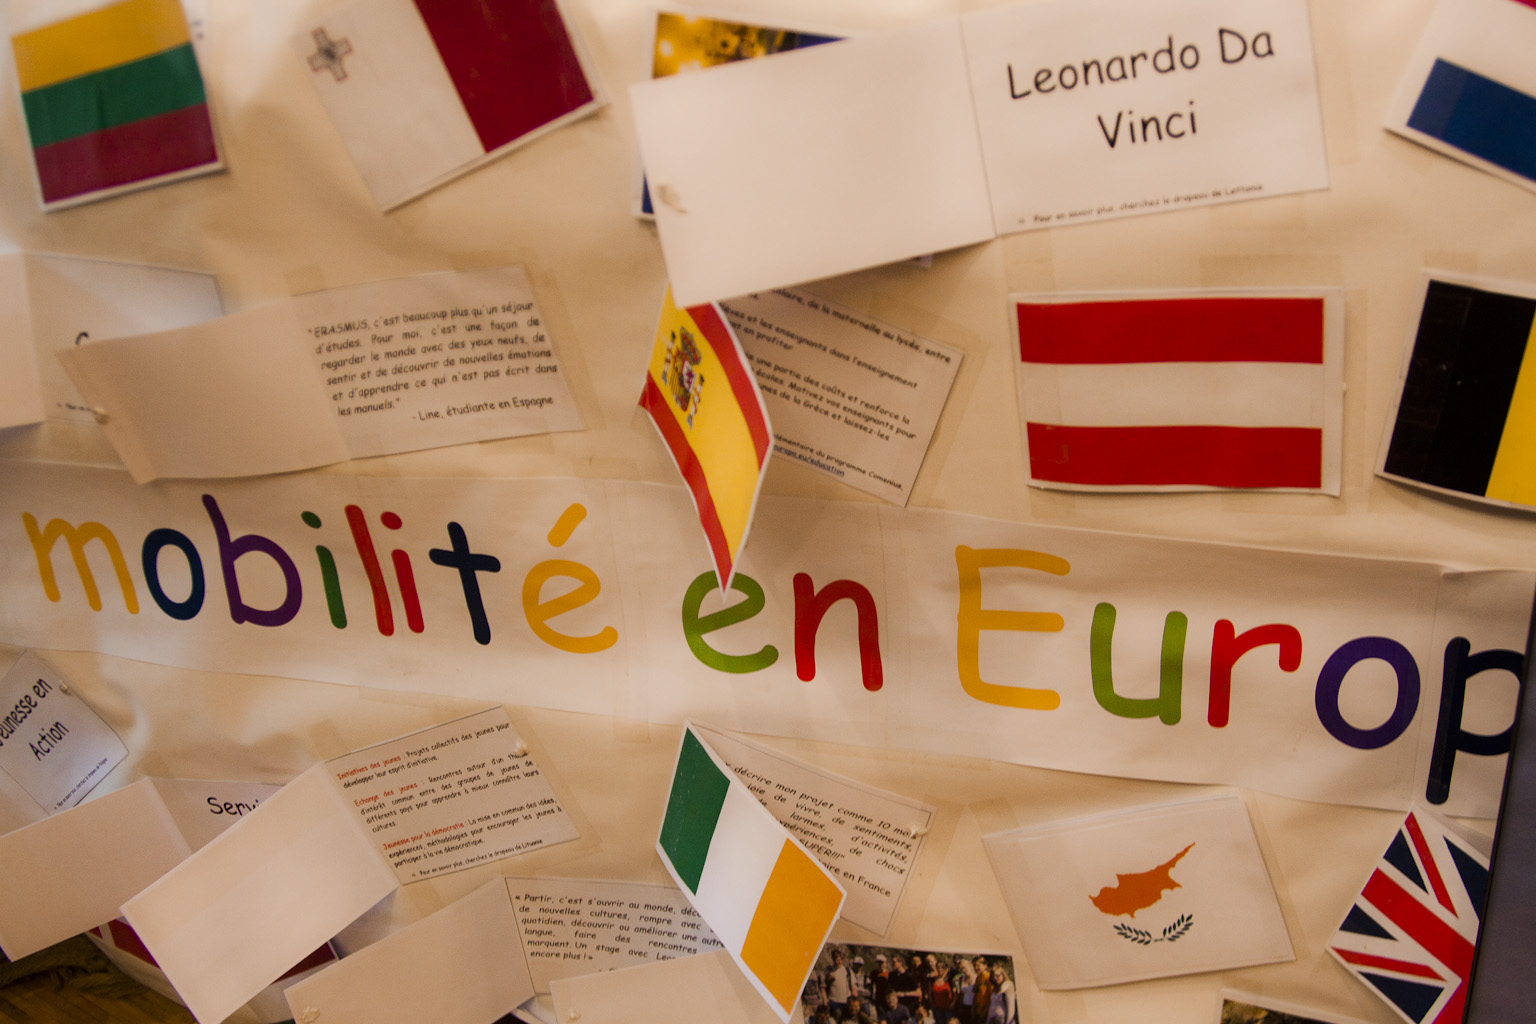 Leonardo Da
Vinci
Pour en savoir plus, cherchez le drapeau de Lettonie
"ERASMUS, c'est beaucoup plus qu'un séjour
d'études. Pour moi, c'est une façon de
regarder le monde avec des yeux neufs, de
sentir et de découvrir de nouvelles émotions
et d'apprendre ce qui n'est pas écrit dans
les manuels."
- Line, étudiante en Espagne
de la maternelle au lycée, entre
et les enseignants dans l'enseignement
en profiter
une partie des coûts et renforce la
écoles. Motivez vos enseignants pour
de la Grèce et laissez-les
du programme Comenius,
europa.eu/education
mobilité en Europ
Jeunesse en
Action
Servi
Initiatives des jeunes : Projets collectifs des jeunes pour
développer leur esprit d'initiative.
Echange des jeunes : Rencontres autour d'un
d'intérêt commun entre des groupes de jeunes de
différents pays pour apprendre à mieux connaître leurs
cultures.
Jeunesse pour la démocratie : La mise en commun des idées,
expériences, méthodologies pour encourager les jeunes à
participer à la vie démocratique.
Pour en savoir plus, cherchez le drapeau de Lituanie
décrire mon projet comme 10 mois
de vivre, de sentiments,
larmes, d'activités,
de chocs
SUPER!!!"
en France
« Partir, c'est s'ouvrir au monde,
de nouvelles cultures, rompre avec
quotidien, découvrir ou améliorer une autre
langue, faire des rencontres
marquent. Un stage avec
encore plus ! »